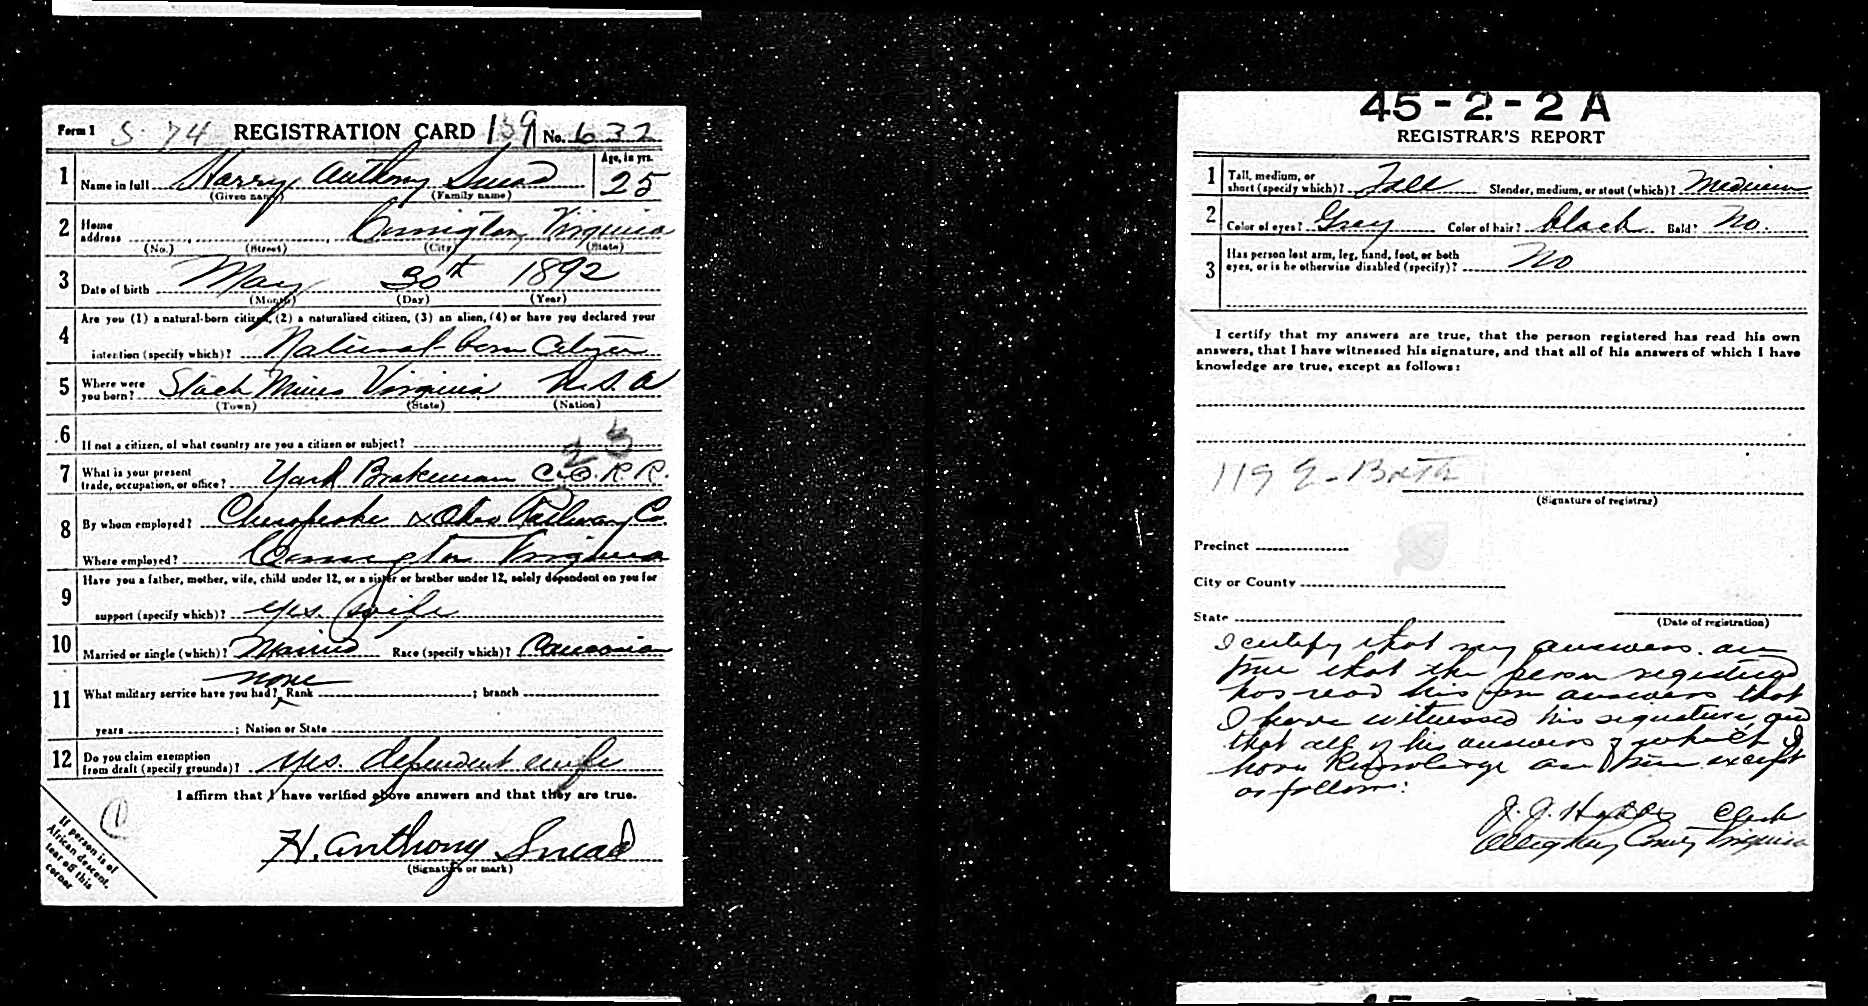 Form 1 S-74 REGISTRATION CARD 139 No. 632
1 Name in full Harry Anthony Snead Age, in yrs. 25
(Given name) (Family name)
2 Home address Covington, Virginia
(No.) (Street) (City) (State)
3 Date of birth May 30th 1892
(Month) (Day) (Year)
4 Are you (1) a natural-born citizen, (2) a naturalized citizen, (3) an alien, (4) or have you declared your
intention (specify which)? National-born Citizen
5 Where were you born? Stack Mines Virginia U.S.A
(Town) (State) (Nation)
6 If not a citizen, of what country are you a citizen or subject?
7 What is your present trade, occupation, or office? Yard Brakeman C.&O. R.R.
8 By whom employed? Chesapeake & Ohio Railway Co.
Where employed? Covington Virginia
9 Have you a father, mother, wife, child under 12, or a sister or brother under 12, solely dependent on you for
support (specify which)? yes. wife
10 Married or single (which)? Married Race (specify which)? Caucasian
none
11 What military service have you had? Rank ; branch
years ; Nation or State
12 Do you claim exemption from draft (specify grounds)? yes. dependent wife
I affirm that I have verified above answers and that they are true.
H. Anthony Snead
(Signature or mark)
If person is of
African descent,
tear off this
corner
45-2-2 A
REGISTRAR'S REPORT
1 Tall, medium, or short (specify which)? Tall Slender, medium, or stout (which)? Medium
2 Color of eyes? Gray Color of hair? black Bald? No.
3 Has person lost arm, leg, hand, foot, or both
eyes, or is he otherwise disabled (specify)? No
I certify that my answers are true, that the person registered has read his own
answers, that I have witnessed his signature, and that all of his answers of which I have
knowledge are true, except as follows:
119 E-Bath
(Signature of registrar)
Precinct
City or County
State
(Date of registration)
I certify that my answers are
true that the person registered
has read his own answers that
I have witnessed his signature and
that all of his answers of which I
have Knowledge are true except
as follows:
J. J. Hobbs Clerk
Alleghany County Virginia